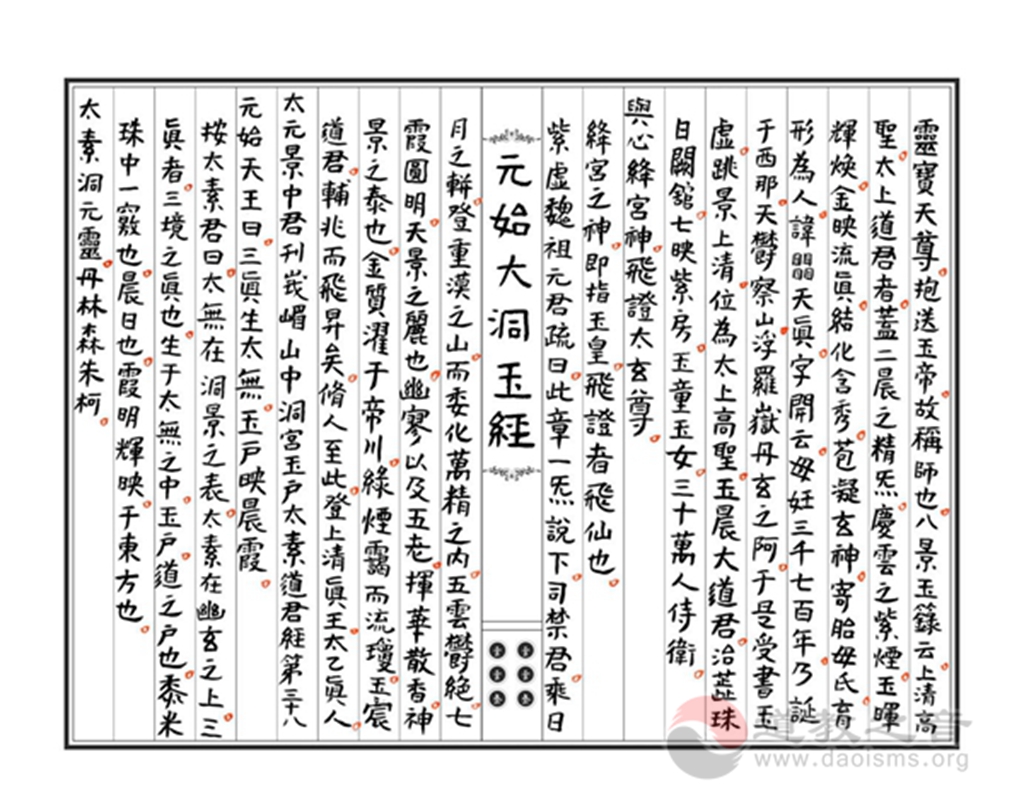 靈寶天尊抱送玉帝故稱師也八景玉籙云上清高
聖太上道君者蓋二晨之精炁慶雲之紫煙玉暉
輝煥金映流眞結化含秀苞凝玄神寄胎母氏育
形為人諱天眞字開云母妊三千七百年乃誕
于西那天鬱察山浮羅嶽丹玄之阿于是受書玉
虛跳景上清位為太上高聖玉晨大道君治蘂珠
日闕館七映紫房玉童玉女三十萬人侍衛
與心絳宮神飛證太玄尊
絳宮之神即指玉皇飛證者飛仙也
紫虛魏祖元君疏曰此章一炁說下司禁君乘日
元始大洞玉經
月之軿登重漠之山而委化萬精之內五雲鬱絕七
霞圓明天景之麗也幽寥以及五老揮華散香神
景之泰也金質濯于帝川綠煙靄而流瓊玉宸
道君輔兆而飛昇矣脩人至此登上清眞王太乙眞人
太元景中君刊峩嵋山中洞宮玉戶太素道君經第三十八
元始天王曰三眞生太無玉戶映晨霞
按太素君曰太無在洞景之表太素在幽玄之上三
眞者三境之眞也生于太無之中玉戶道之戶也黍米
珠中一竅也晨日也霞明輝映于東方也
太素洞元靈丹林森朱柯
道教之音
www.daoisms.org